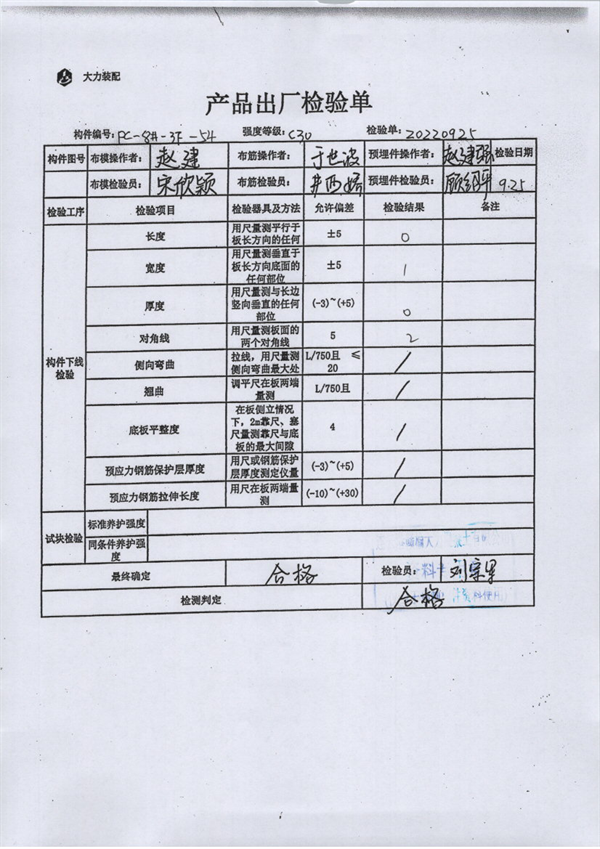 大力装配
产品出厂检验单
构件编号: PC-8#-3F-54 强度等级: C30 检验单: 20220925
构件图号 布模操作者: 赵建 布筋操作者: 于世波 预埋件操作者: 赵建强 检验日期
布模检验员: 宋欣颖 布筋检验员: 预埋件检验员: 9.25
检验工序 检验项目 检验器具及方法 允许偏差 检验结果 备注
构件下线检验
长度 用尺量测平行于板长方向的任何 ±5 0
宽度 用尺量测垂直于板长方向底面的任何部位 ±5 1
厚度 用尺量测与长边竖向垂直的任何部位 (-3)~(+5) 0
对角线 用尺量测板面的两个对角线 5 2
侧向弯曲 拉线，用尺量测侧向弯曲最大处 L/750且 ≤20 /
翘曲 调平尺在板两端量测 L/750且 /
底板平整度 在板侧立情况下，2m靠尺、塞尺量测靠尺与底板的最大间隙 4 /
预应力钢筋保护层厚度 用尺或钢筋保护层厚度测定仪量 (-3)~(+5) /
预应力钢筋拉伸长度 用尺在板两端量测 (-10)~(+30) /
试块检验 标准养护强度
同条件养护强度
最终确定 合格 检验员:
检测判定 合格